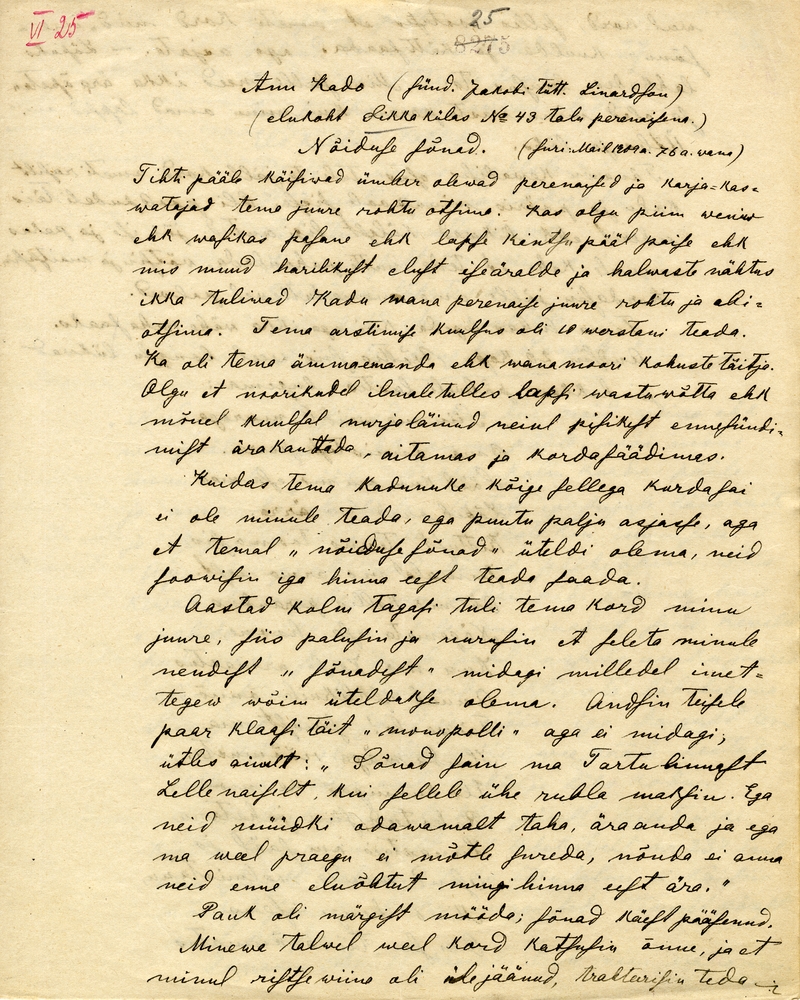 VI 25
25
8275
Ann Kado (sünd. Jakobi tütt. Linardson)
(elukoht Sikka külas № 43 talu perenaisena.)
Nõiduse sõnad. (suri: Mail 1909a. 76 a. wana)
Tihti pääle käisiwad ümber olewad perenaised ja karja-kas=
watajad tema juure rohtu otsima. Kas olgu piim weniw
ehk wasikas pasane ehk lapse kintsu pääl paise ehk
mis muud harilikust elust iseäralde ja halwaste nähtus
ikka tuliwad Kadu wana perenaise juure rohtu ja abi=
otsima. Tema arstimise kuulsus oli 10 werstani teada.
Ka oli tema ämmaemanda ehk wanamoori kohuste täitja.
Olgu et noorikudel ilmaletulles lapsi wastuwõtta ehk
mõnel kuulsal nurjaläinud neiul pisikest ennesündi=
mist ärakauttada, aitamas ja kordasäädimas.
Kuidas tema kadunuke kõige sellega kordasai
ei ole minule teada, ega puutu palju asjasse, aga
et temal „nõiduse sõnad" üteldi olema, neid
soowisin iga hinna eest teada saada.
Aastad kolm tagasi tuli tema kord minu
juure, siis palusin ja nurusin et seleta minule
nendest „sõnadest" midagi milledel imet=
tegew wõim üteldakse olema. Andsin teisele
paar klaasi täit „monopolli" aga ei midagi;
ütles ainult: „Sõnad sain ma Tartu linnast
Lelle naiselt, kui sellele ühe rubla maksin. Ega
neid müüdki odawamalt taha, äraanda ja ega
ma weel praegu ei mõtle sureda, nõnda ei anna
neid enne eluõhtut mingi hinna eest ära."
Pauk oli märgist mööda; sõnad käest pääsenud.
Minewa talwel weel kord katsusin õnne, ja et
minul ristsewiina oli üle jäänud, trakteerisin teda